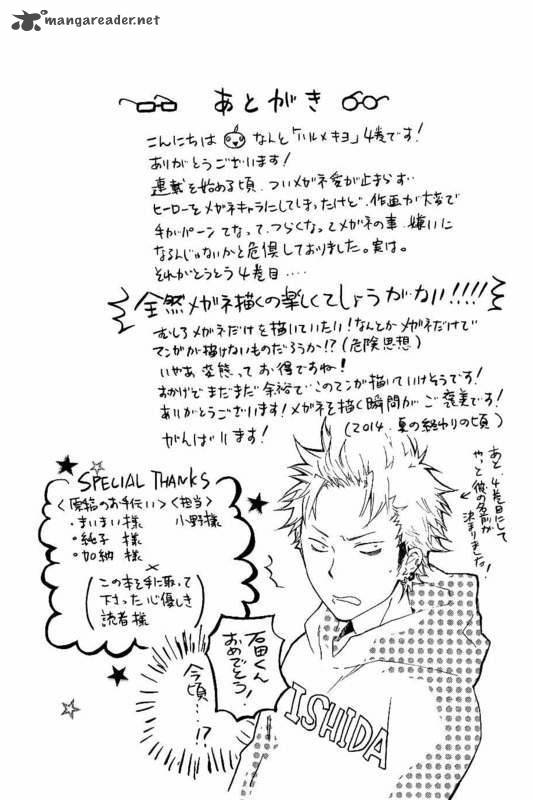 mangareader.net
あとがき
こんにちは なんと「ハルメキヨ」4巻です!
ありがとうございます!
連載を始める頃、ついメガネ愛が止まらず…
ヒーローをメガネキャラにしてしまったけど、作画が大変で
手がパーンてなって、つらくなってメガネの事、嫌いに
なるんじゃないかと危倶しておりました。実は。
それがとうとう4巻目‥‥
全然メガネ描くの楽しくてしょうがない!!!!
むしろメガネだけを描いていたい!なんとかメガネだけで
マンガが描けないものだろうか!?(危険思想)
いやあ変態ってお得ですね!
おかげでまだまだ余裕でこのマンガ描いていけそうです!
ありがとうございます!メガネを描く瞬間がご褒美です!
がんばります!
(2014.夏の終わりの頃)
あと、4巻目にして
やっと彼の名前が
決まりました!
SPECIAL THANKS
<原稿のお手伝い> <担当>
・まいまい様 小野様
・純子様
・加納様
×
(この本を手に取って
下さった心優しき
読者様)
石田くん
おめでとう!
今頃…!?
ISHIDA